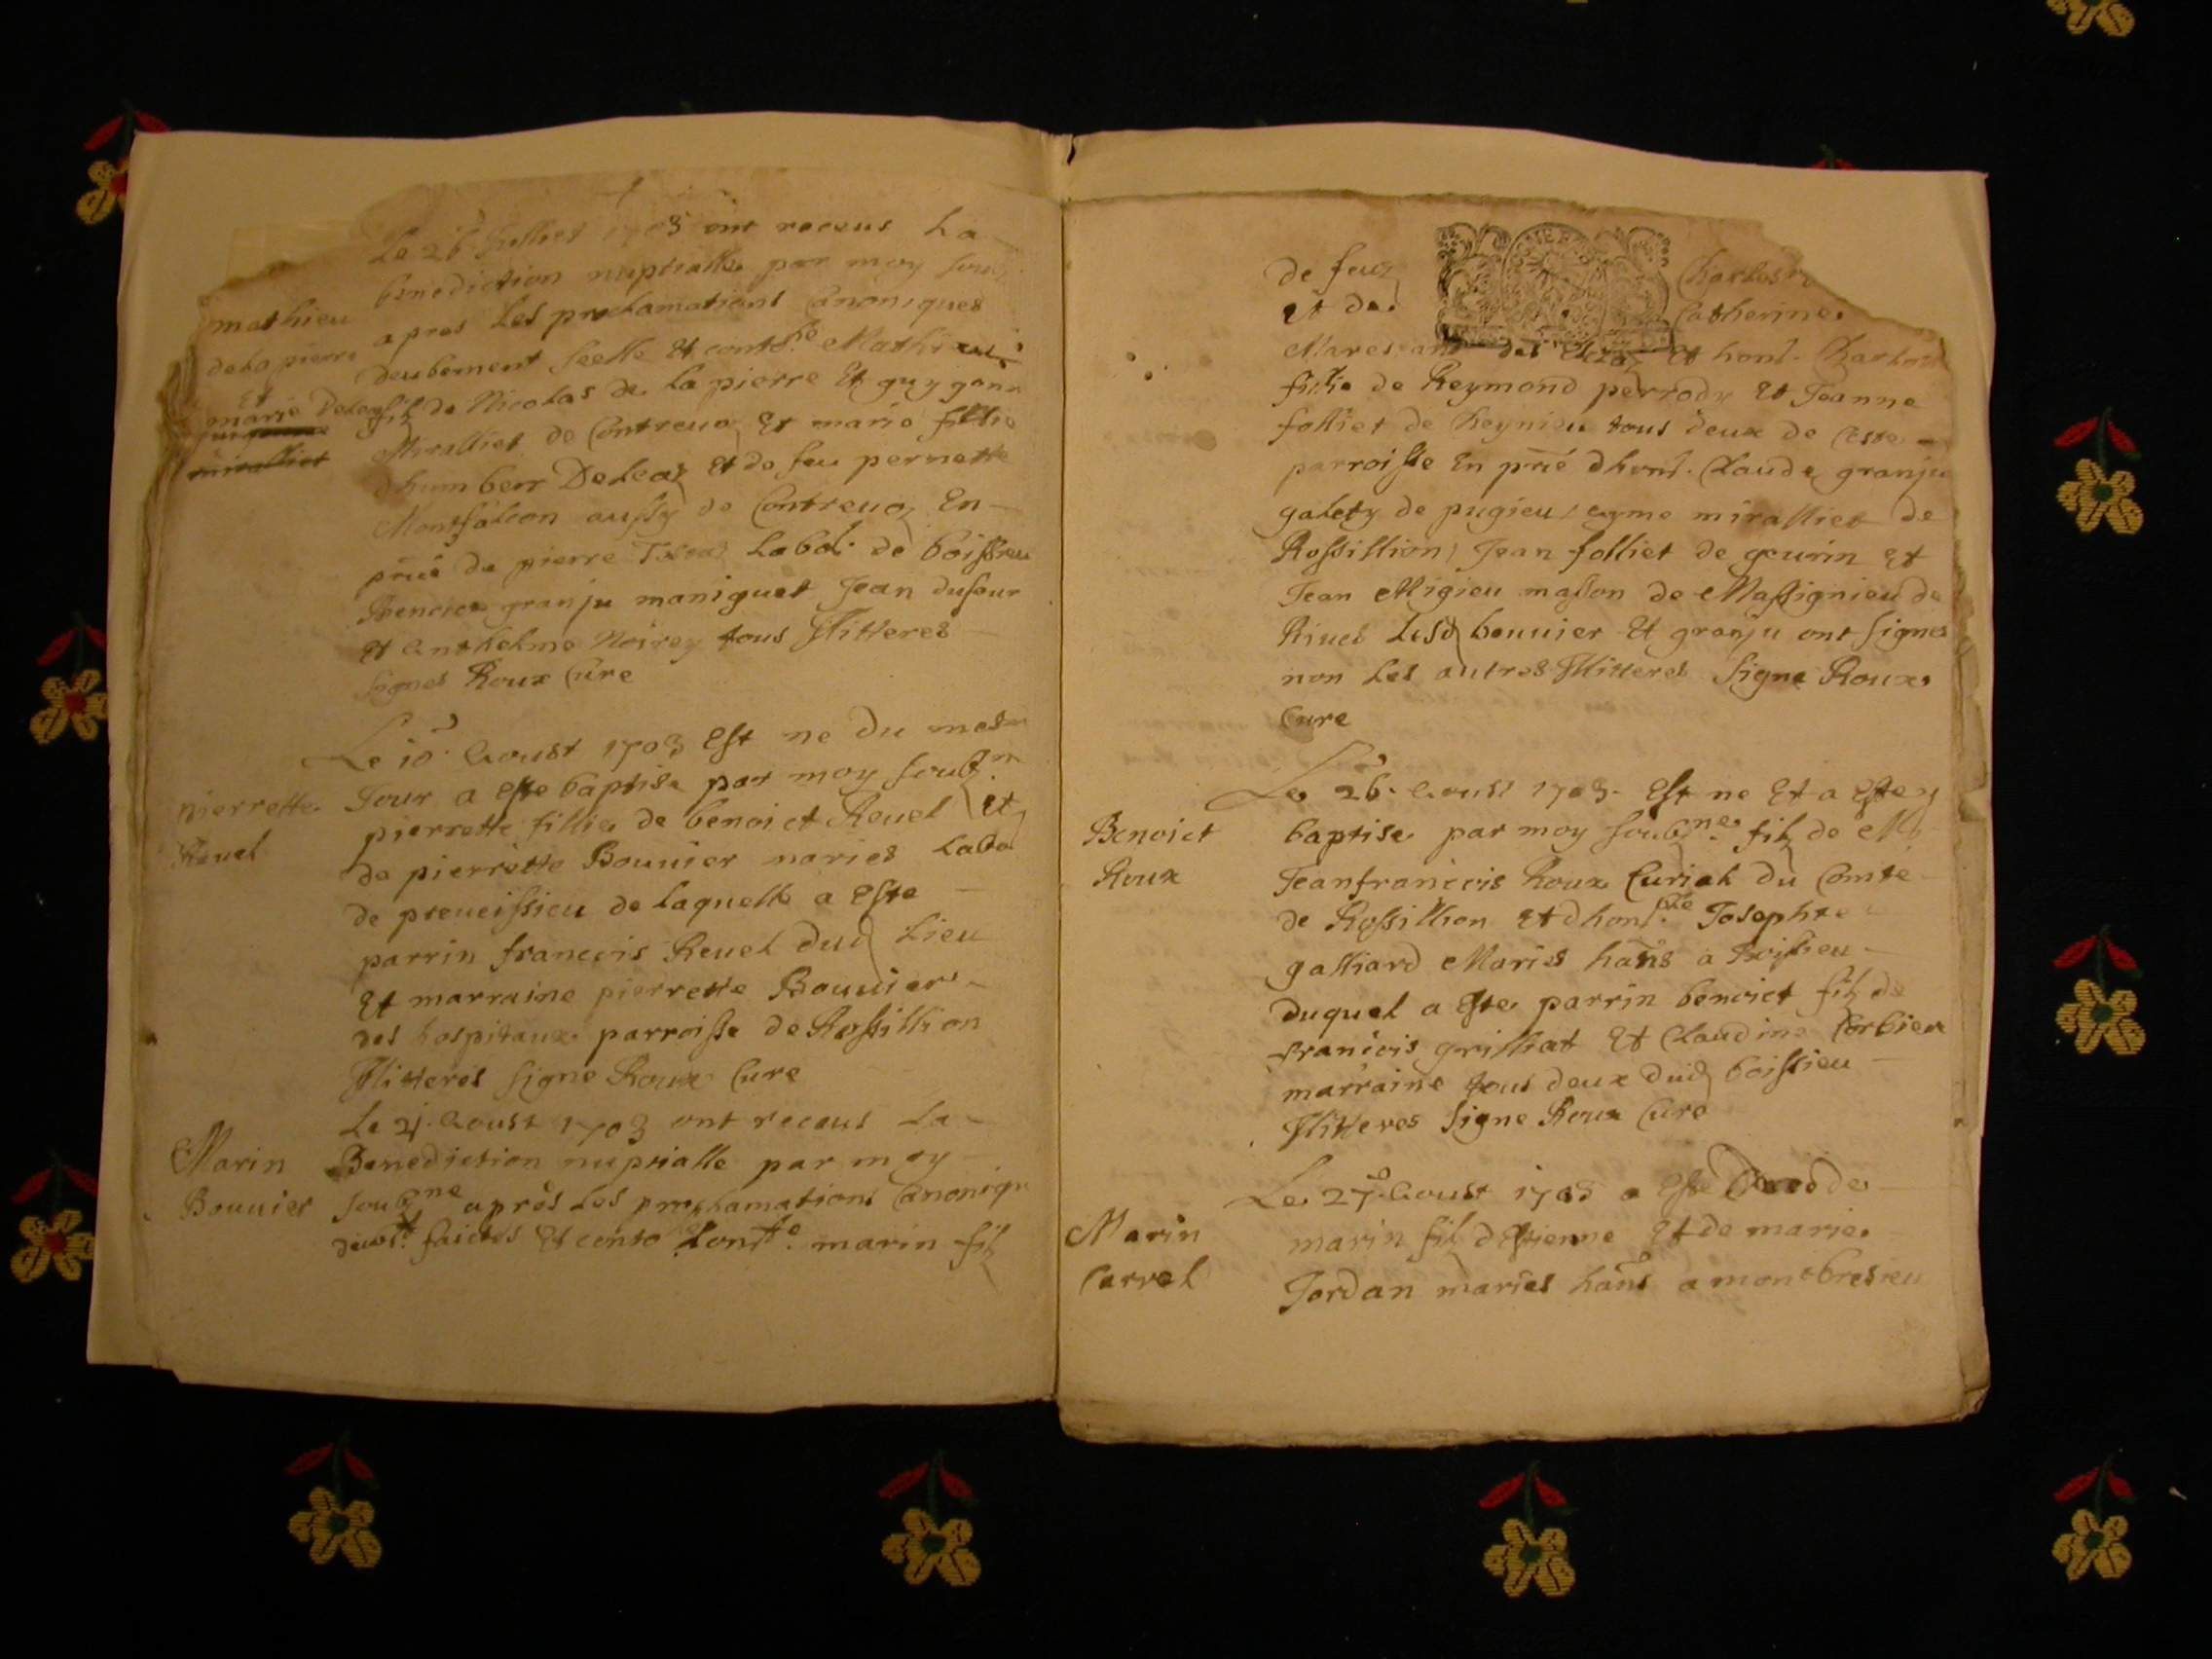 Le 26 Juilliet 1703 ont receus La
benediction nuptialle par moy
mathieu
apres Les proclamations Canoniques
de la pierre
deubement seelle Et contole Mathieu
Et
marie Deleaz
miralliet
filz de Nicolas de La pierre Et guygonne
Miralliet de Contreuoz Et marie fillie
dhumberr Deleaz Et de feu pernette
Montfalcon aussy de Contreuoz En
pnce de pierre Labol. de boissieu
Benoict granju maniguet Jean dufour
Et Anthelme Noirey tous Illitteres
signes Roux Cure
Le 10. Aoust 1703 Est ne Du mesm
pierrette
Reuel
Jour a este baptise par moy soubzn
pierrette fillie de benoict Reuel Et
de pierrette Bouuier maries Labo
de preueissieu de Laquelle a Este
parrin francois Reuel dud Lieu
Et marraine pierrette Bouuier
des hospitaux parroisse de Rossillion
Illitteres signe Roux Cure
Le 21. Aoust 1703 ont receus La
Marin
Bouuier
Benediction nuptialle par moy
soubzne après Les proclamations Canoniqu
faictes Et conto marin filz
de feuz Charles
Et de Catherine
Et hons.
fillie de Reymond perrody Et Jeanne
folliet de Cheynieu tous deux de Ceste
parroisse En pnce dhons. Claude granju
galety de pugieu, eyme miralliet de
Rossillion, Jean folliet de geurin Et
Jean Migieu masson de Massignieu de
Riues Lesd bouuier Et granju ont signes
non Les autres Illitteres Signe Roux
Cure
Le 26. Aoust 1703. Est ne Et a Este
Benoict
Roux
baptise par moy soubzne. filz de
Jeanfrancois Roux Curial du Comte
de Rossillion Et dhonste Josephte
galliard Maries hans a Boissieu
duquel a Este parrin benoict filz de
francois grilliat Et Claudine Corbier
marraine tous deux dud boissieu
Illitteres Signe Roux Cure
Le 27. Aoust 1703 a Este
Marin
Carrel
marin filz dEstienne Et de marie
Jordan maries hans a montbresieu